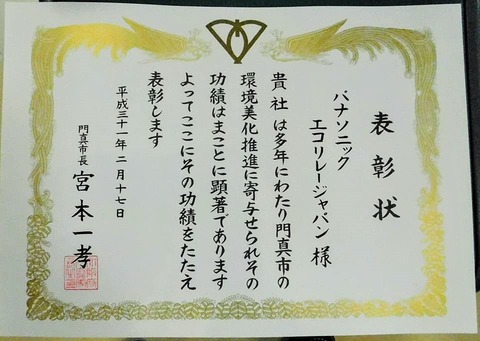 表彰状
パナソニック
エコリレージャパン 様
貴社は多年にわたり門真市の
環境美化推進に寄与せられその
功績はまことに顕著であります
よってここにその功績をたたえ
表彰します
平成三十一年二月十七日
門真市長 宮本一孝